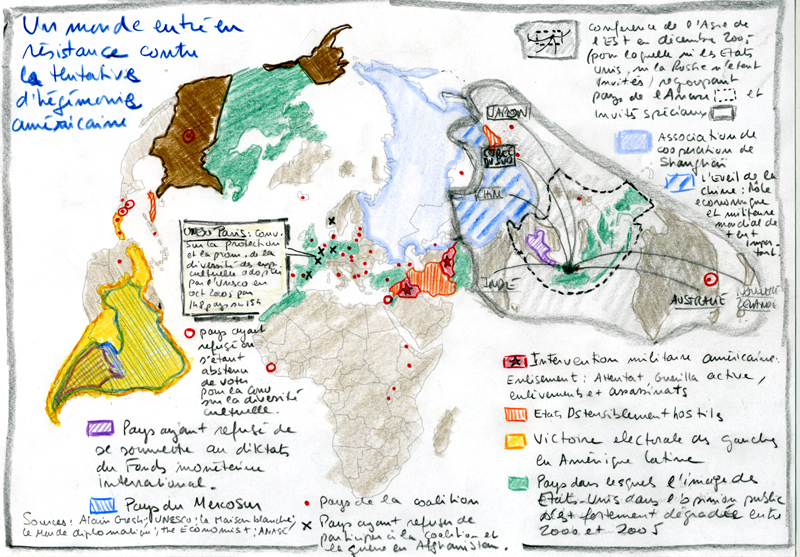 Un monde entré en
résistance contre
la tentative
d'hégémonie
américaine
Conférence de l'Asie de
l'Est en décembre 2005
(pour laquelle ni les Etats
Unis, ni la Russie n'étaient
invités) regroupant
pays de l'Anase et
Invités spéciaux
Association de
coopération de
Shanghaï
L'Eveil de la
Chine : Rôle
économique
et militaire
mondial de
+ en +
important.
JAPON
COREE
DU SUD
CHINE
INDE
AUSTRALIE
NOUVELLE
ZELANDE
UNESCO Paris : Conv.
sur la protection
et la prom. de la
diversité des exp.
culturelle adoptée
par l'Unesco en
oct 2005 par
148 pays sur 154
pays ayant
refusé ou
s'étant
abstenu
de voter
pour la conv
sur la diversité
culturelle.
Pays ayant refusé de
se soumettre au diktats
du Fonds monétaire
International.
Pays du Mercosur
Pays de la coalition
Pays ayant refusé de
participer à la coalition et
la guerre en Afghanistan.
Intervention militaire américaine :
Enlisement : Attentat, Guerilla active,
enlèvements et assassinats
Etats Ostensiblement hostiles
Victoire électorale des gauches
en Amérique latine
Pays dans lesquels l'image des
Etats-Unis dans l'opinion public
s'est fortement dégradée entre
2000 et 2005
Sources : Alain Gresh ; UNESCO ; la Maison blanche ;
le Monde diplomatique ; the Economist ; ANASE